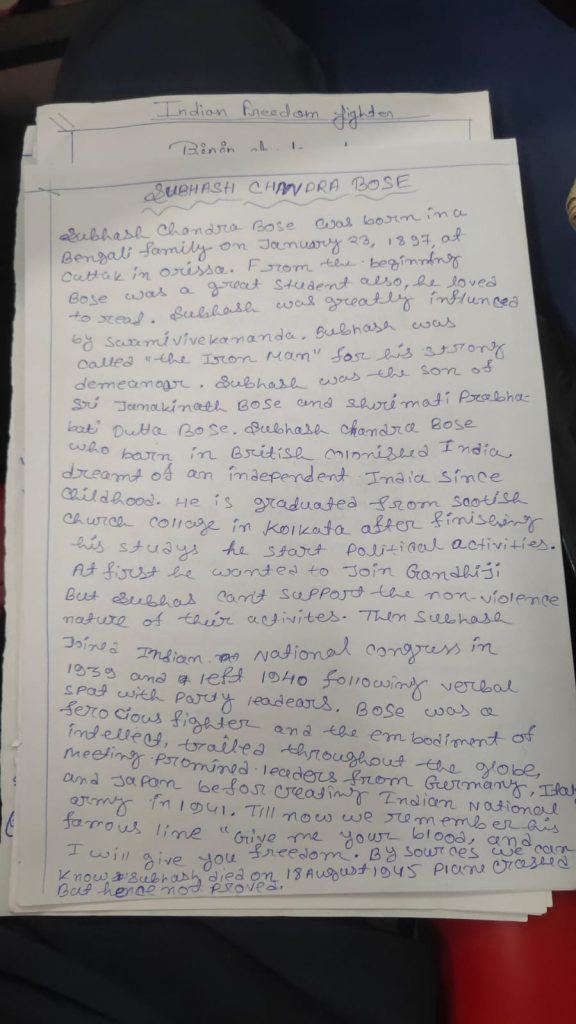 Indian Freedom fighter
SUBHASH CHANDRA BOSE
Subhash Chandra Bose was born in a
Bengali family on January 23, 1897, at
Cuttak in orissa. From the beginning
Bose was a great student also, he loved
to read. Subhash was greatly influnced
by swamivivekananda. Subhash was
called "the Iron Man" for his strong
demeanoor. Subhash was the son of
Sri Janakinath Bose and Shrimati Prabha-
bati Dutta Bose. Subhash Chandra Bose
who born in British colonished India,
dreamt of an independent India since
Childhood. He is graduated from scotish
Church collage in Kolkata after finishing
his studys he start Political activities.
At first he wanted to Join Gandhiji
But Subhas can't support the non-violence
nature of their activites. Then Subhash
Joined Indian National congress in
1939 and left 1940 following verbal
spat with Party leadears. Bose was a
ferocious fighter and the embodiment of
intellect, tralled throughout the globe,
Meeting Promined leaders from Germany, Italy
and Japan befor creating Indian National
army in 1941. Till now we remember his
famous line "Give me your blood, and
I will give you freedom. By sources we can
Know Subhash died on 18 August 1945 Plane crashed
But hence not proved.